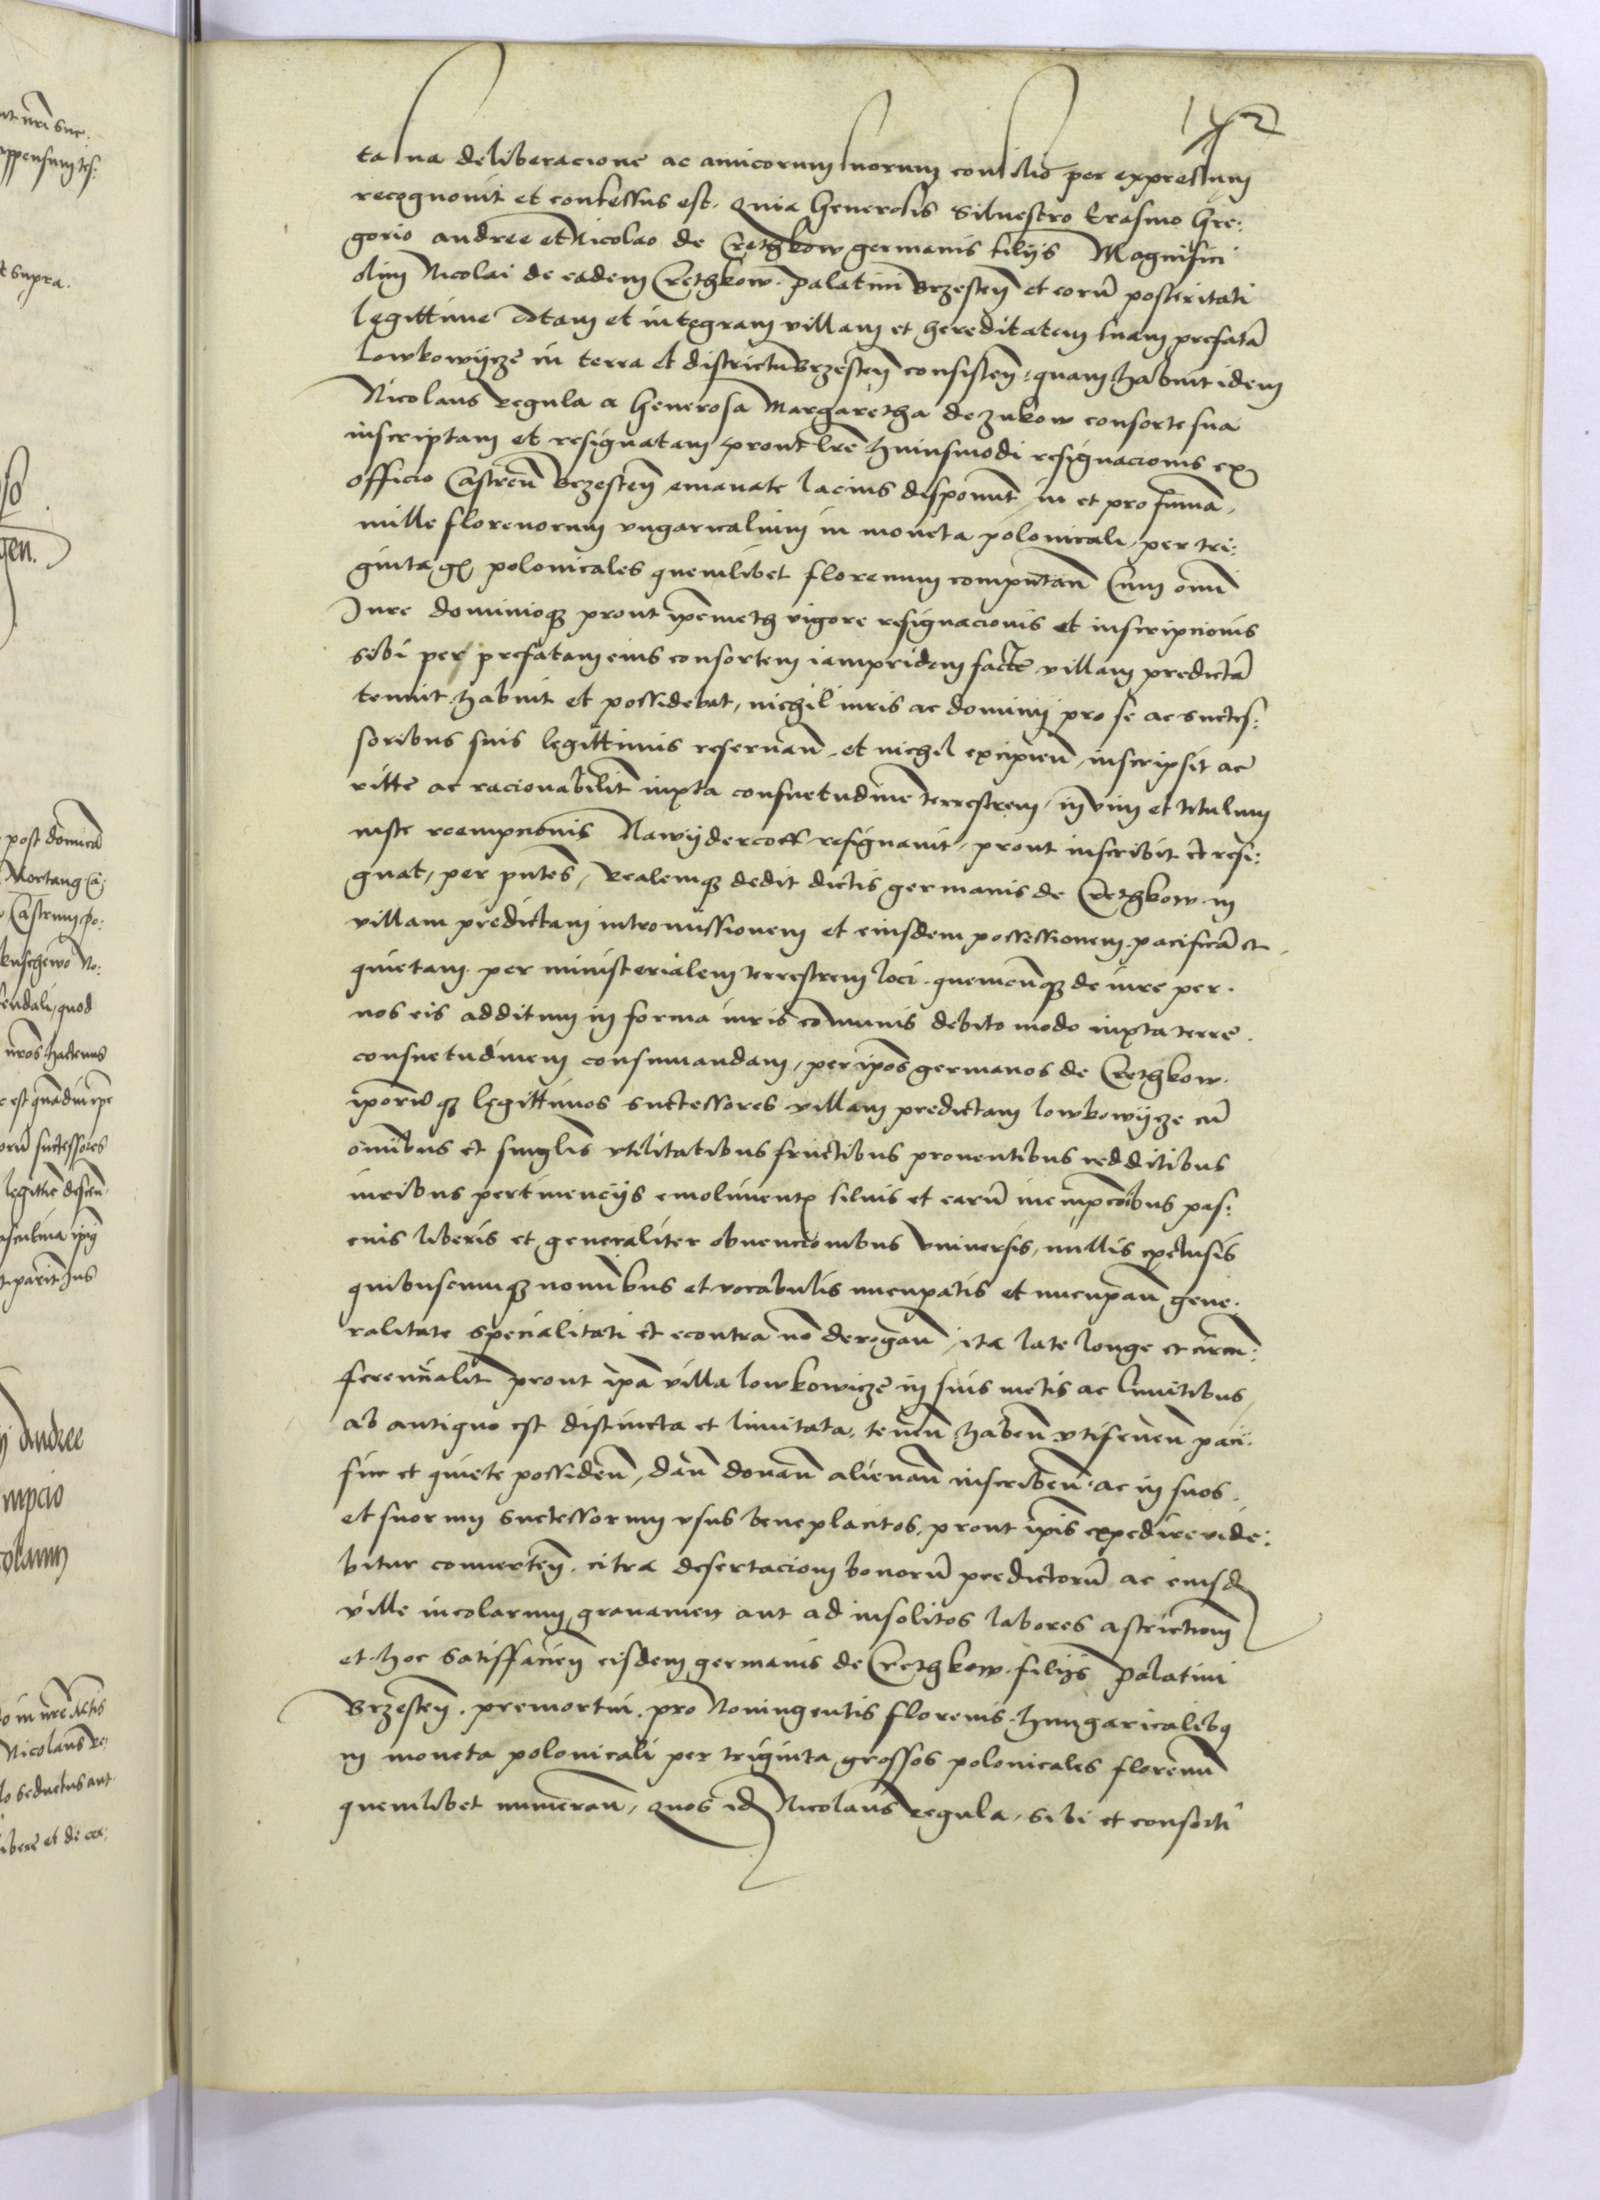 152
ta sua deliberacione ac amicorum suorum consilio per expressum
recognovit et confessus est. Quia Generosis Silvestro Erasmo Gre:
gorio andree et Nicolao de Crethkow germanis filijs Magnifici
olim Nicolai de eadem Crethkow. palatini Brzesten et eorū posteritati
legittime totam et integram villam et hereditatem suam prefatā
lowkowijcze in terra et districtu Brzesten consisten. quam habuit idem
Nicolaus Regula a Generosa Margaretha de zukow consorte sua
inscriptam et resignatam prout lre huiusmodi resignacionis ex
officio Castren Brzesten emanate lacius disponunt, in et pro suma
mille florenorum ungaricalium in moneta polonicali, per tri:
ginta gs polonicales quemlibet florenum computan Cum omni
Iure dominioq prout ipemeth vigore resignacionis et inscripcionis
sibi per prefatam eius consortem iampridem facte villam predictā
tenuit habuit et possidebat, nichil iuris ac dominij pro se ac succes:
soribus suis legittimis reservan, et nichil excipien, inscripsit ac
ritte ac racionabilit iuxta consuetudinē terrestrem, in vim et titulum
iuste reempcionis Nawijdercoff resignavit, prout inscribit et resi:
gnat, per pntes, Realemq dedit dictis germanis de Crethkow. in
villam predictam intromissionem et eiusdem possessionem pacificā et
quietam. per ministerialem terrestrem loci. quemcunq de iure per.
nos eis additum in forma iuris comunis debito modo iuxta terre.
consuetudinem consumandam, per ipos germanos de Crethkow.
iporūq legittimos successores villam predictam lowkowijcze cū
omibus et singlis utilitatibus fructibus proventibus redditibus
iuribus pertinencijs emolimentis silvis et earū inempcoibus pas:
cuis liberis et generaliter obvencionibus universis, nullis exclusis
quibuscumq nominibus et vocabulis nucupatis et nucupan gene.
ralitate specialitati et econtra no derogan, ita late longe et circu:
ferencialit prout ipa villa lowkowicze in suis metis ac limitibus
ab antiquo est distincta et limitata, tenen haben utifruen paci.
fice et quiete possiden, dan donan alienan inscriben. ac in suos.
et suorum successorum usus beneplacitos, prout ipis expedire vide:
bitur converten. citra desertaciom bonorū predictorū ac eiusd
ville incolarum gravamen aut ad insolitos labores astrictiom
et hoc satisfacien eisdem germanis de Crethkow. filijs palatini
Brzesten. premortui. pro Noningentis florenis hungaricalibq
in moneta polonicali per triginta grossos polonicales florenu
quemlibet numeran, Quos id Nicolaus Regula, sibi et consorti